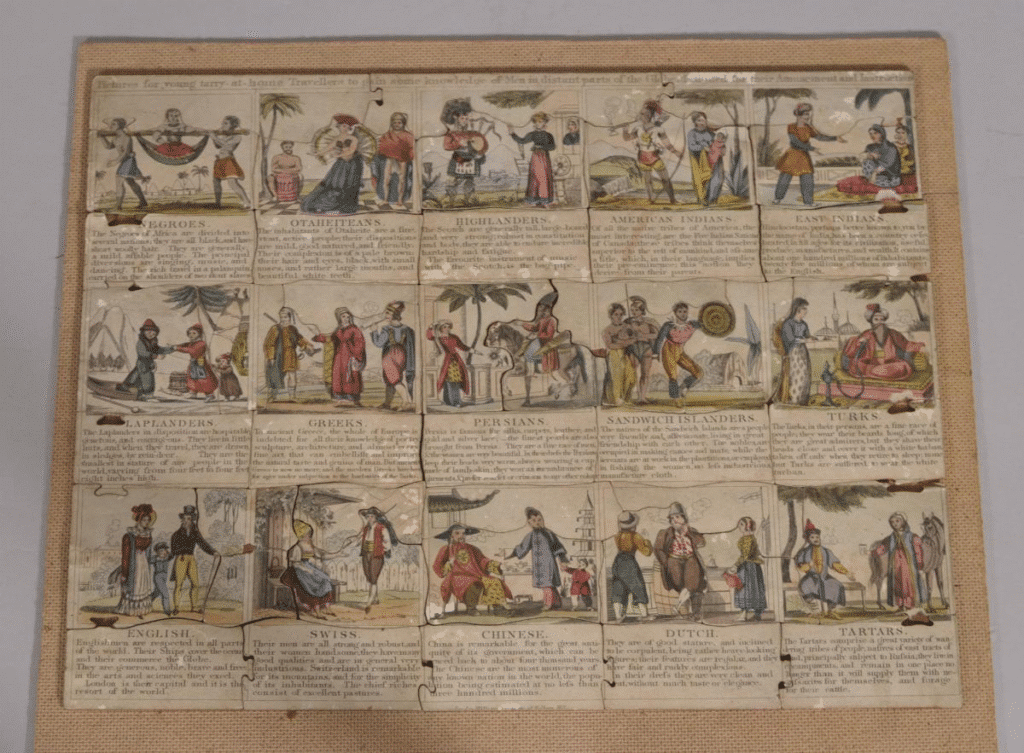 Pictures for young tarry-at-home Travellers to gain some knowledge of Men in distant parts of the Globe for their Amusement and Instruction
NEGROES.
The Negroes of Africa are divided into
several nations; they are all black, and have
short woolly hair. They are generally,
a mild affable people. The principal
diversions are singing, music, and
dancing. The rich travel in a palanquin
carried on the shoulders of two stout slaves
OTAHEITEANS.
The inhabitants of Otaheite are a fine,
active people; their dispositions
are mild, good natured, and friendly.
Their complexion is of a pale brown;
their hair and eyes, black, with small
noses, and rather large mouths, and
beautiful white teeth.
HIGHLANDERS.
The Scotch are generally tall, large-boned
and
and hardy, they are able to endure incredible
hardship and fatigue.
The favourite instrument of music
with the Scotch, is the bag pipe.
AMERICAN INDIANS.
Of all the native tribes of America, the
most interesting are the Five Indian Nations
of Canada these tribes think themselves
superior to the rest of mankind, and assume
a title, which, in their language, implies
their pre-eminence; this notion They
from their parents.
EAST INDIANS.
Hindoostan, perhaps better known to you by
the name of India, was a country
for its civilization, useful
about one hundred millions of inhabitants
twenty five millions of whom are subject
to the English.
LAPLANDERS.
The Laplanders in disposition are hospitable,
generous, and courageous. They live in little
huts, and when they travel, they are drawn
in sledges, by rein-deer. They are the
smallest in stature of any people in the
world, varying from four feet to four feet
eight inches high.
GREEKS.
To ancient Greece, the whole of Europe is
indebted for all their knowledge of poetry
sculpture, architecture and almost every
fine art, that can embellish and improve
the natural taste and genius of man. But
is now no more, and the modern Greeks have
for ages under subjection to the
PERSIANS.
Persia is famous for silks, carpets, leather,
gold and silver lace; the finest pearls are also
brought from Persia. They are a fine race of men
The women are very beautiful,
keep their heads very warm, always wearing a cap
made of lambskin, they want not the
SANDWICH ISLANDERS.
The natives of the Sandwich Islands are a people
very friendly and, affectionate, living in great
friendship with each other. The nobles, are
occupied in making canoes and mats, while the
servants are at work in the plantations, or employed
in fishing; the women, no less industrious
manufacture cloth.
TURKS.
The Turks, in their persons, are a fine race of
people; they wear their beards long, of which
they are great admirers, but they shave their
heads close and cover it with a white turban,
taken off only when they retire to sleep; none
but Turks are suffered to wear the white
turban.
ENGLISH.
Englishmen are respected in all parts
of the world. Their Ships cover the ocean
and their commerce the Globe.
They are generous, noble, brave and free;
in the arts, and sciences they excel.
London is their capital and it is the
resort of the world.
SWISS.
Their men are all strong and robust, and
their women handsome, they have many
good qualities and are in general very
industrious. Switzerland is remarkable
for its mountains, and for the simplicity
of its inhabitants. The chief riches
consist of excellent pastures.
CHINESE.
China is remarkable for the great anti-
quity of its government, which can be
traced back to about four thousand years.
The Chinese are the most numerous of
any known nation in the world, the popu-
lation being estimated at no less than
three hundred millions.
DUTCH.
They are of good stature, and inclined
to be corpulent, being rather heavy-looking
figures; their features are regular, and they
have fair and ruddy complexions.
In their dress they are very clean and
neat, without much taste or elegance.
TARTARS.
The Tartars comprise a great variety of wan-
dering tribes of people, natives of vast tracts of
land, principally subject to Russia, they live in
encampments, and remain in one place no
longer than it will supply them with ne-
cessaries for themselves, and forage
for their cattle.